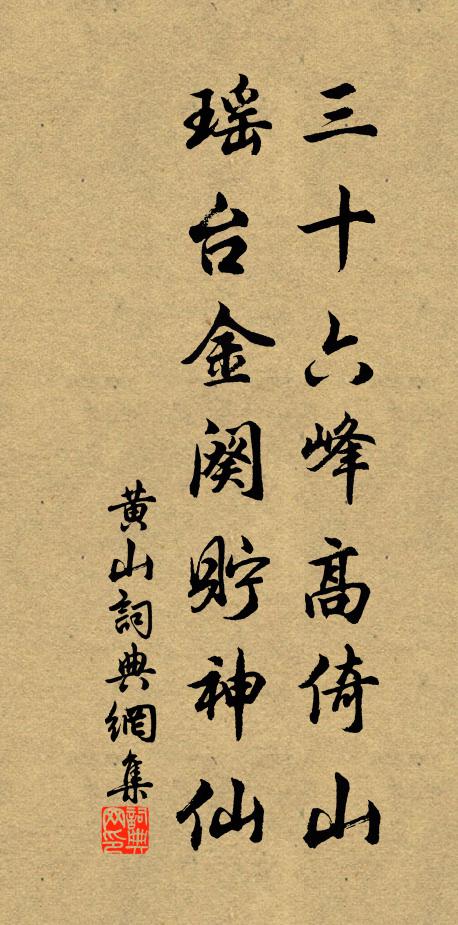 三十六峰高倚山
瑶台金阙貯神仙
黄山詞典網集
詞典网印